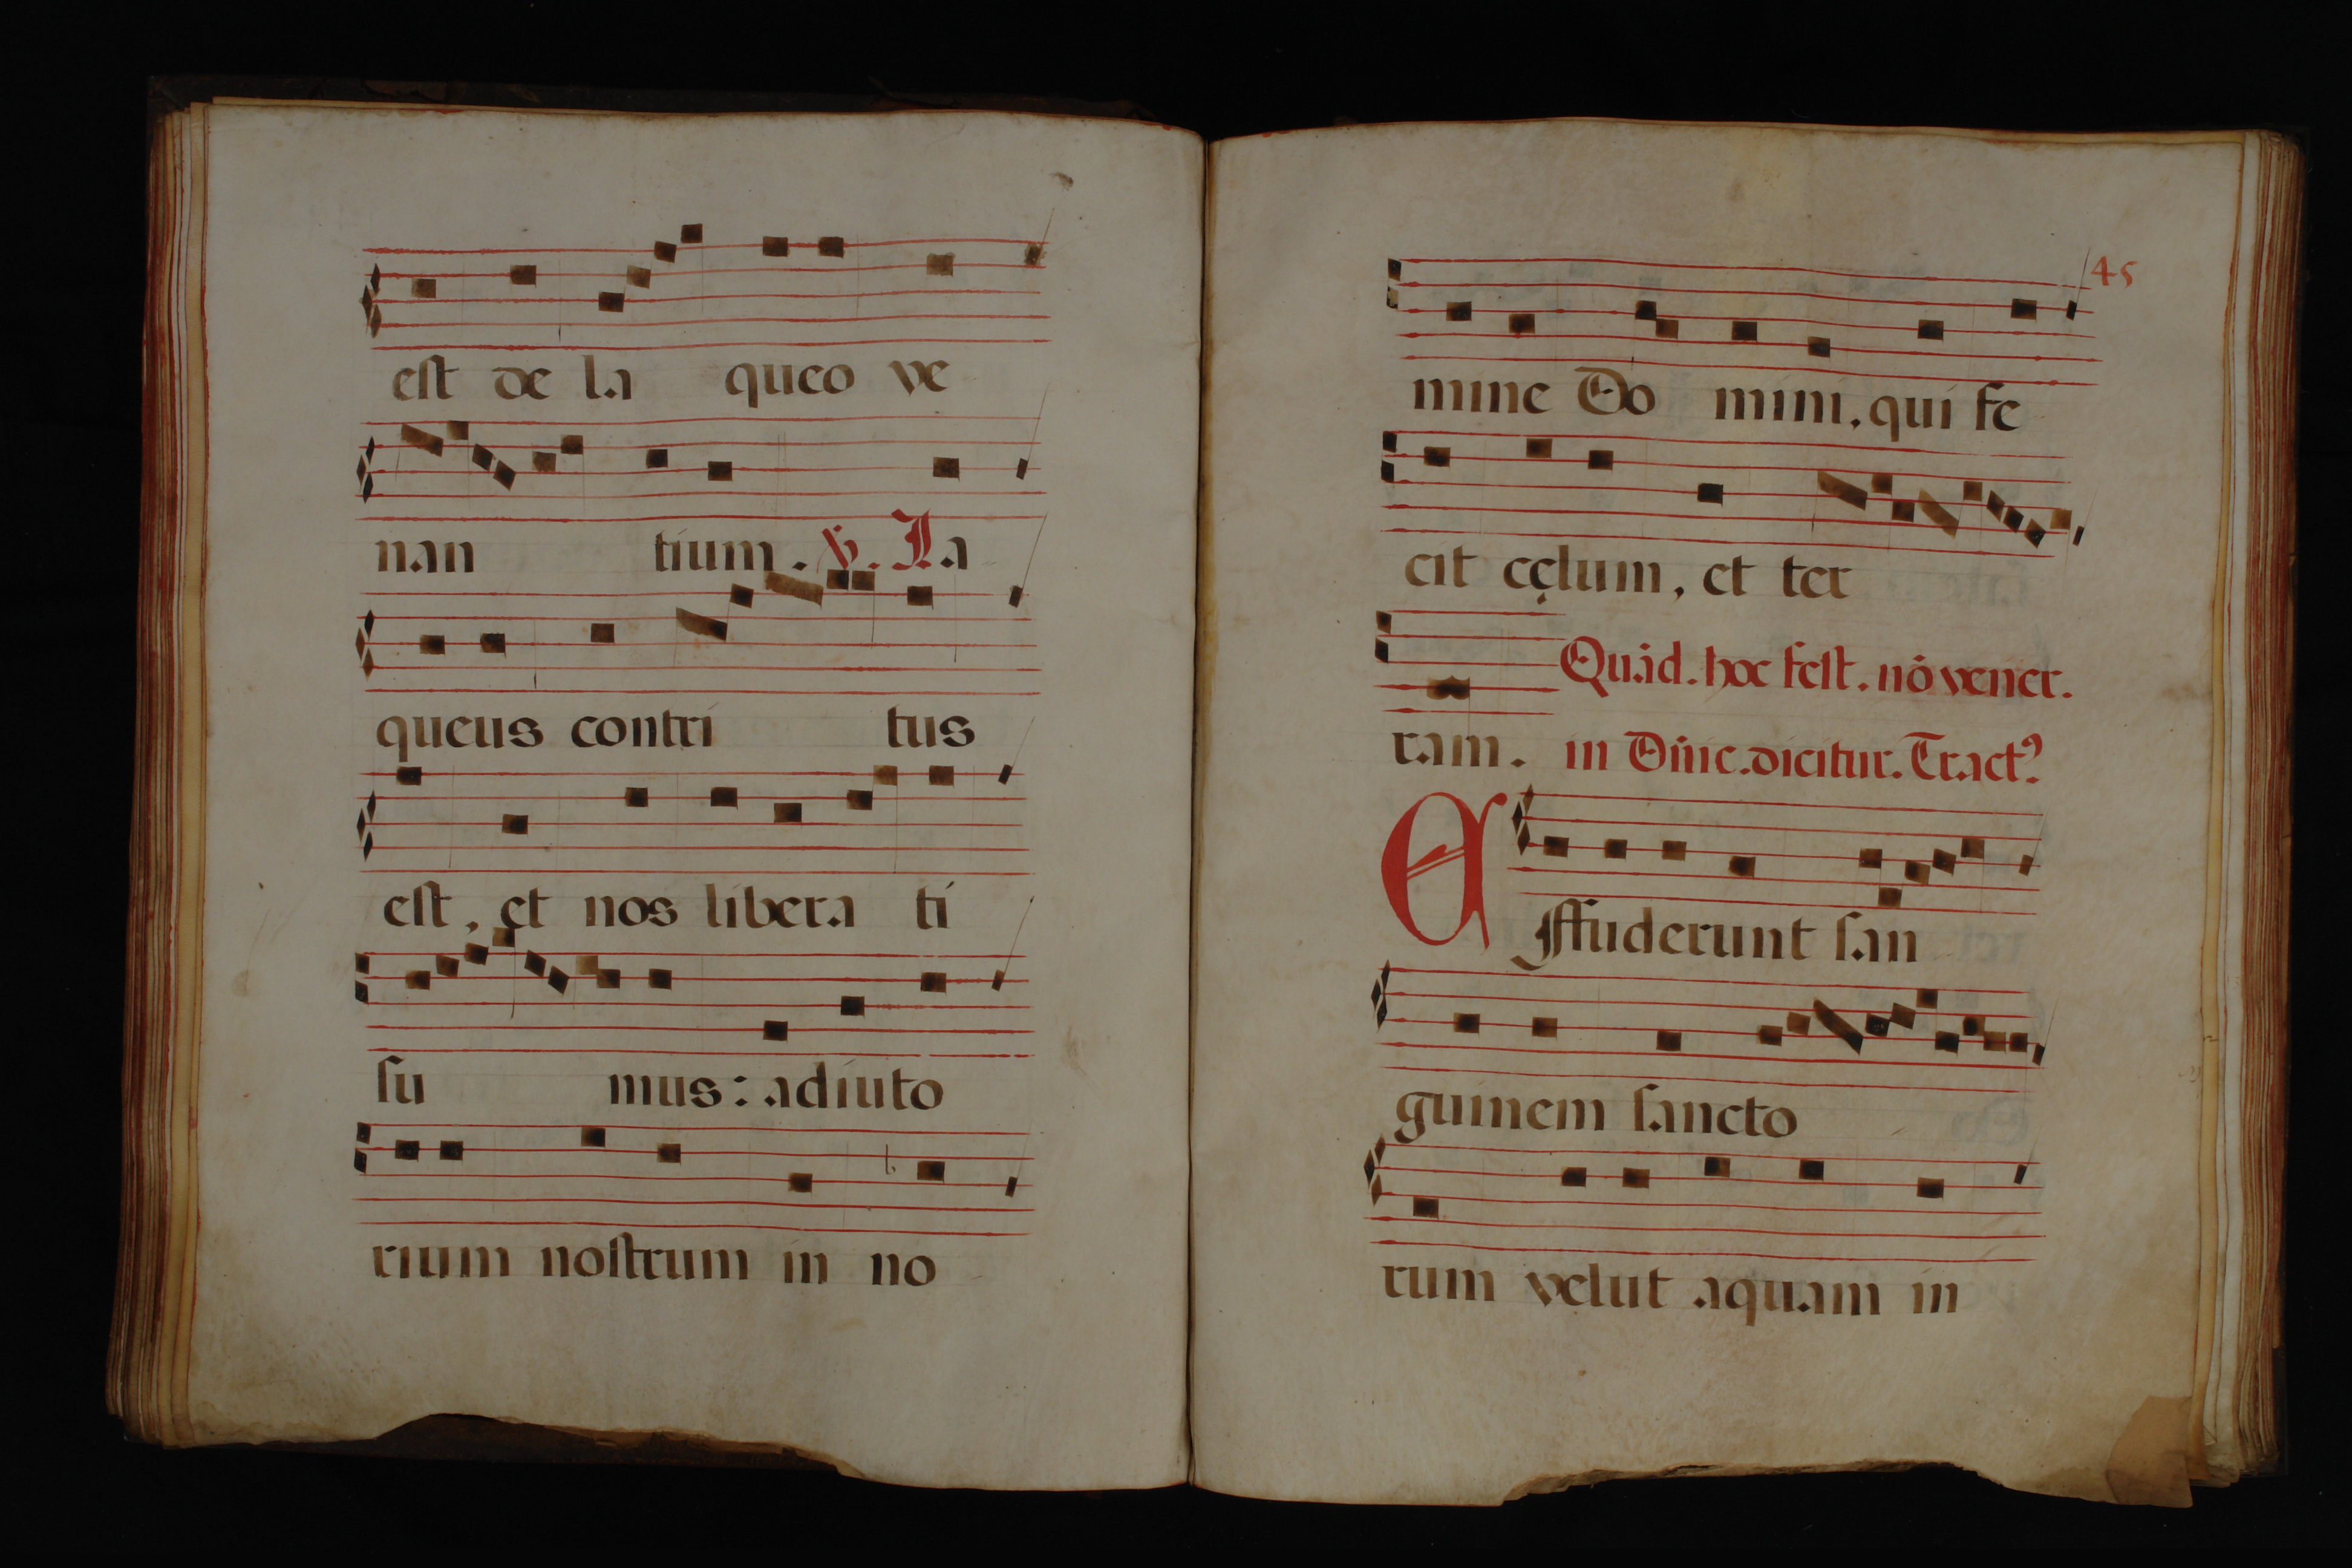 est de la queo ve
nan tium. ℣. La
queus contri tus
est, et nos libera ti
su mus: adiuto
rium nostrum in no
45
mine Do mini. qui fe
cit cęlum, et ter
Quãd. hoc fest. nõ vener.
ram. in Dñic. dicitur. Tractꝰ.
Effuderunt san
guinem sancto
rum velut aquam in